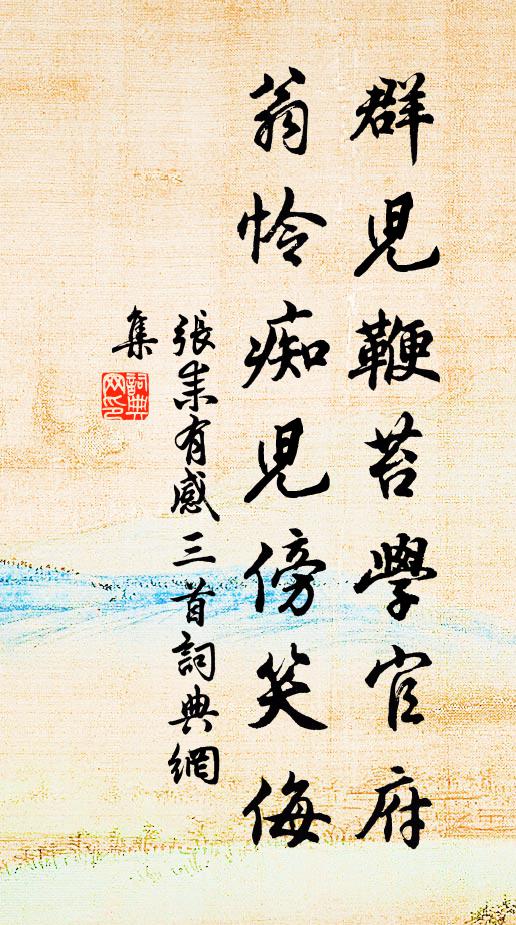 群兒鞭苔學官府
翁怜痴兒傍笑侮
張耒有感三首詞典網
集
詞典
网印